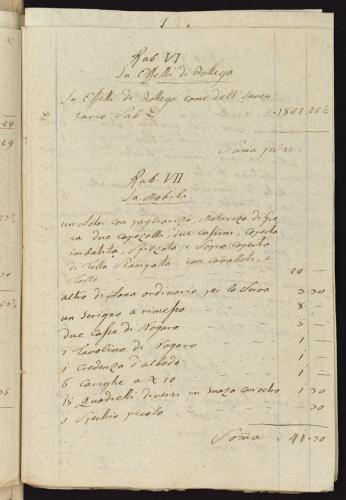 Rab. VI
In Effetti di Bottega
In Effetti di Bottega come dell' Inven-
tario Sub L. 1802.20½
Soma per se
Rab. VII
In Mobili
un Leto con pagliarizo, Matarazo di
due capezalli, due cussini, coperta
imbotita, e Sopracoperta
di Tella Stampata con cavalleti, e
Tolle 20.—
altro di Lana ordinario per la Serva 3.30
un Scrigno a rimesso 8 —
due Casse di Nogaro 5 —
1 Tavolino di Nogaro 1 —
1 Credenza d'albedo 1 —
6 Carighe a X 10 1 —
15 Quadretti diversi in 1 30
1 Spechio picolo — 30
Soma 41.30
29
29